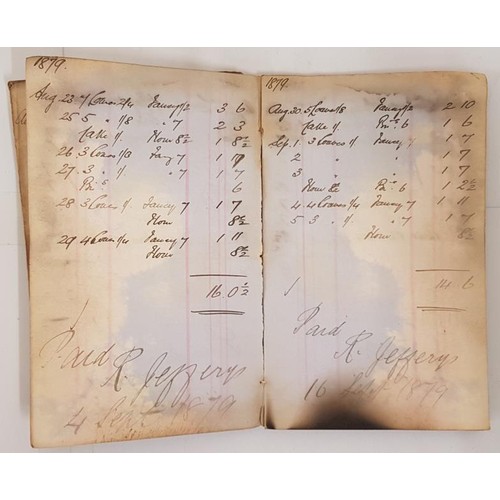 1879.
Aug 23 4 Loaves 2/4 Fancy 1/2 3 6
25 5 " 1/8 " 7 2 3
Cake 1/ Flour 8½ 1 8½
26 3 Loaves 1/3 Fancy 7 1
27 3 " 1/ " 7 1 7
6
28 3 Loaves 1/ Fancy 7 1 7
Flour 8½
29 4 Loaves 1/4 Fancy 7 1 11
Flour 8½
16 0½
Paid
R. Jefferys
4 Sept 1879
1879.
Aug 30 5 Loaves 1/8 Fancy 1/2 2 10
Cake 1/ 6 1 6
Sep. 1 3 Loaves 1/ Fancy 7 1 7
2 " " 1 7
3 " " 1 7
Flour 6 1 2½
4 4 Loaves 1/4 Fancy 7 1 11
5 3 " 1/ " 7 1 7
Flour 8½
14 6
Paid
R. Jefferys
16 Sept 1879